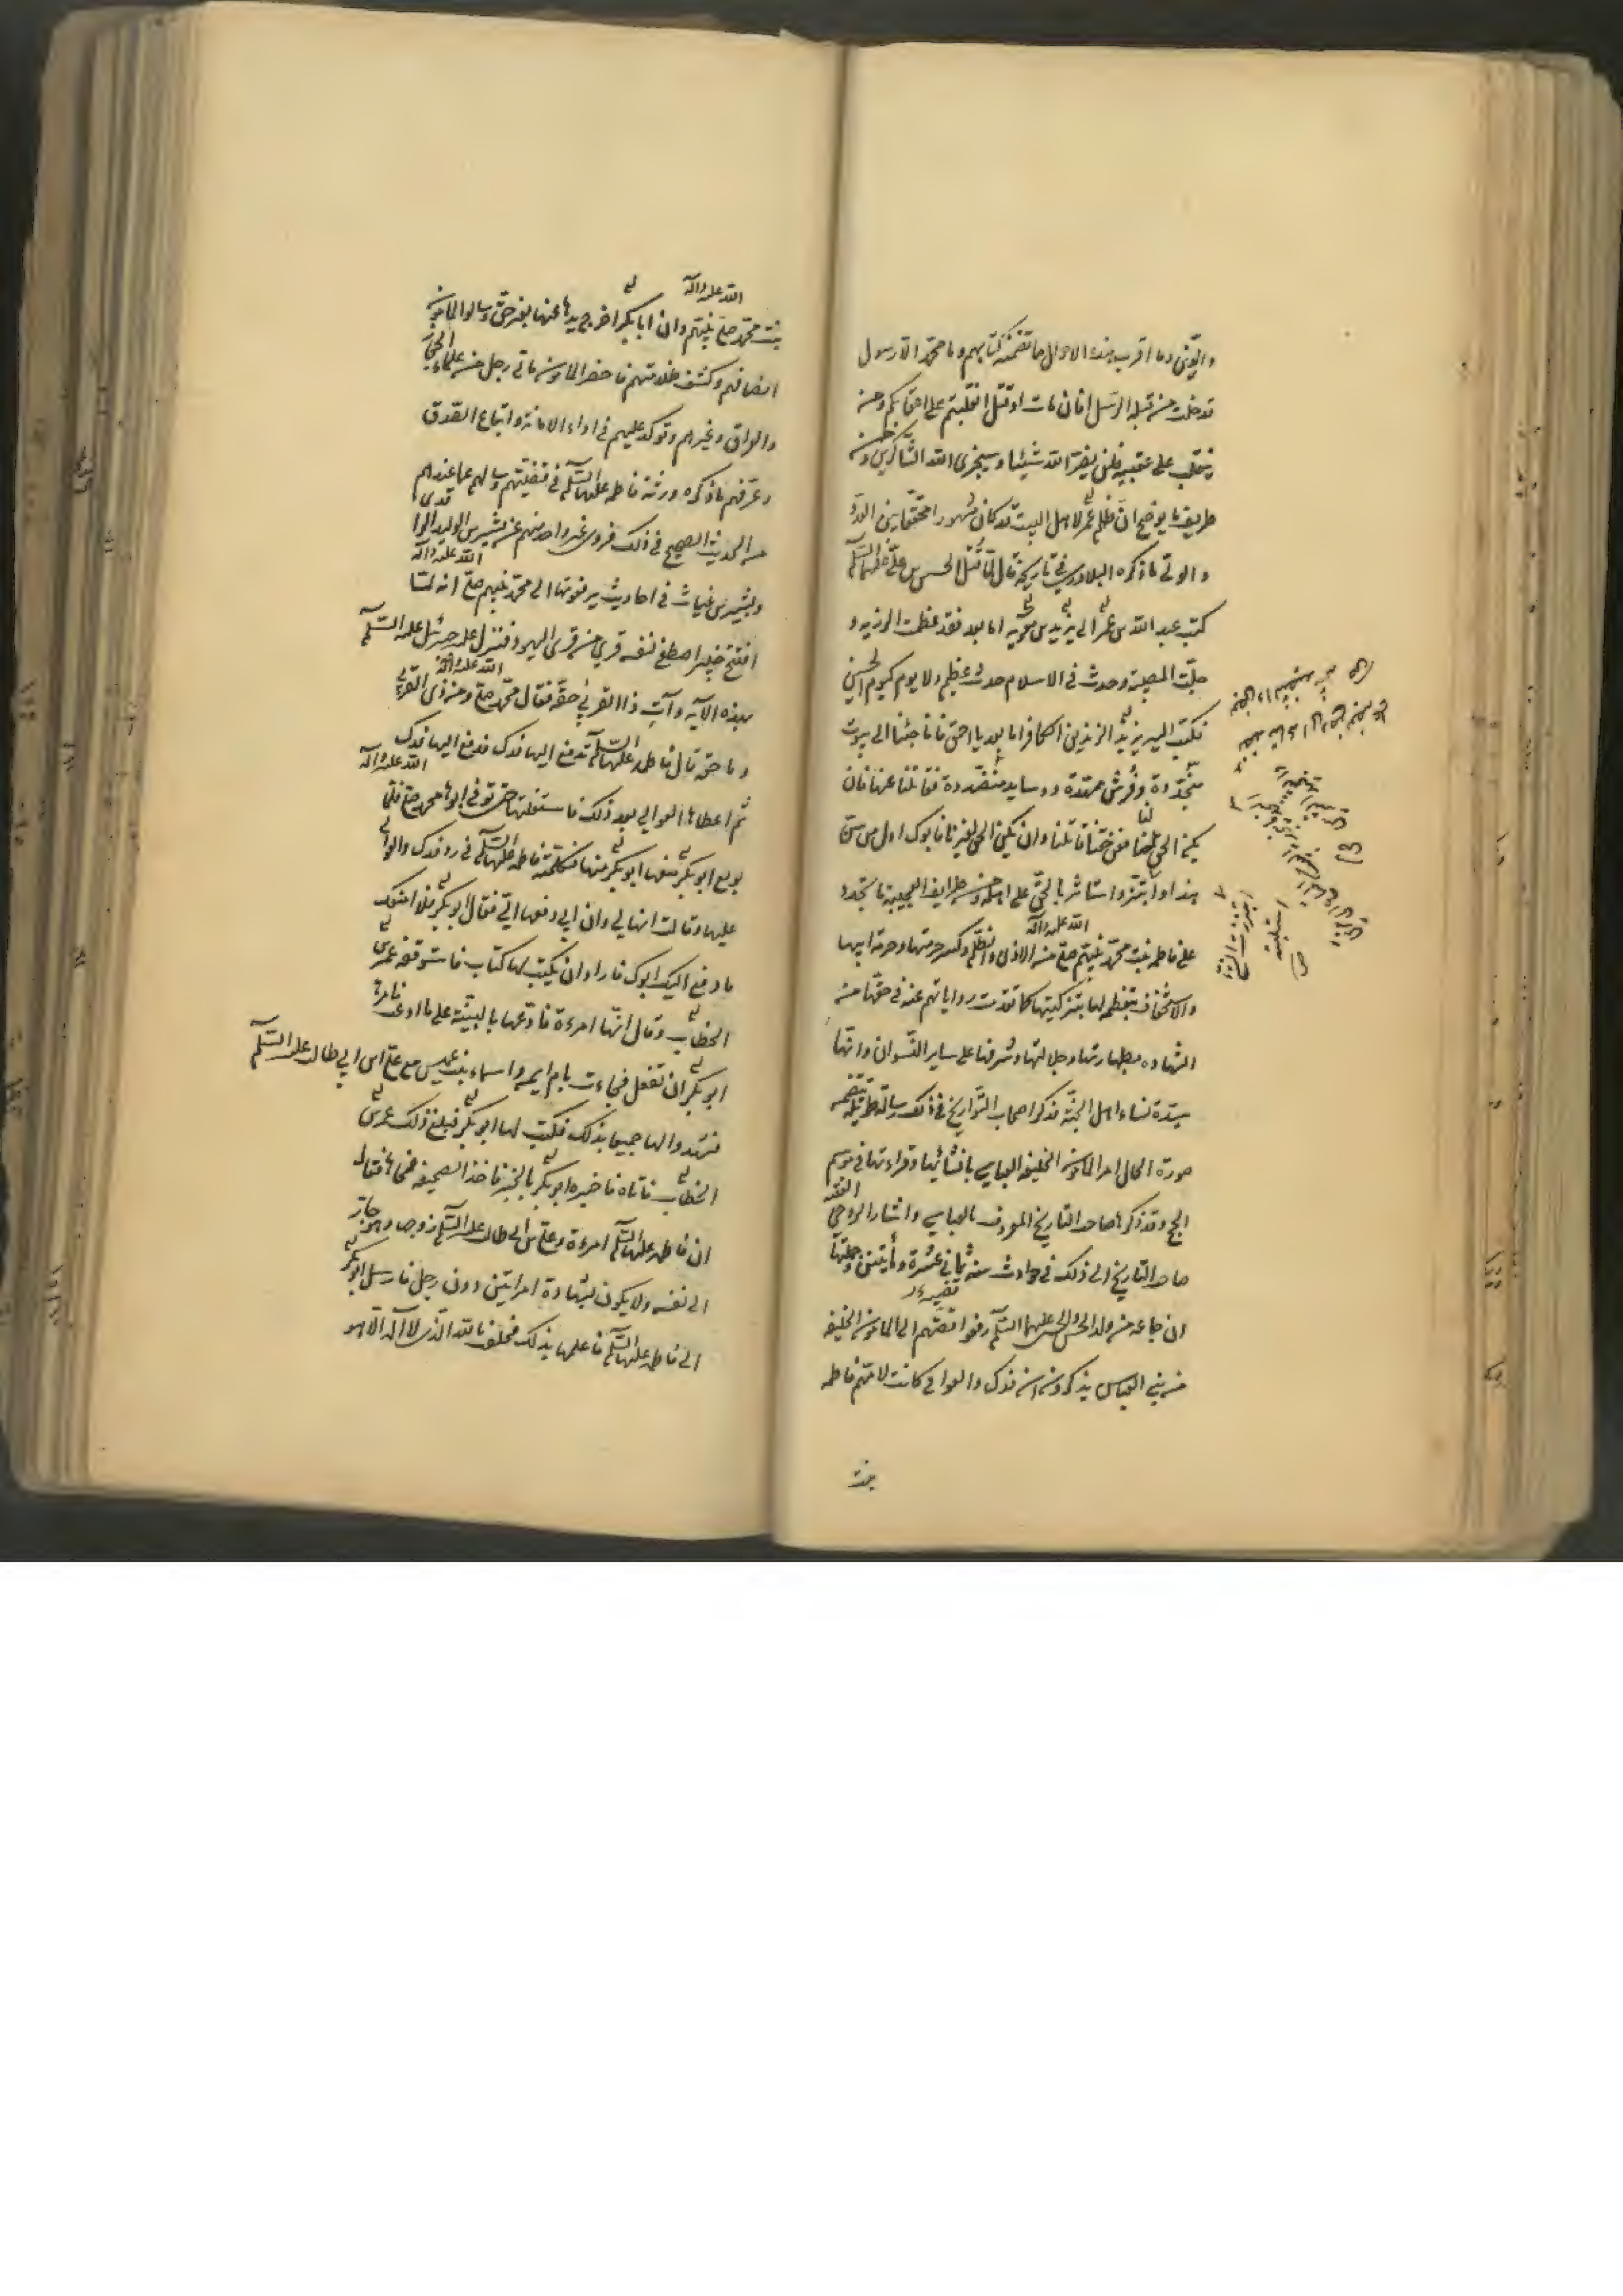 والتوني وما اقرب هذه الاحوال مما تضمنه كتابهم وما محمد الا رسول
قد خلت من قبله الرسل افان مات او قتل انقلبتم على اعقابكم ومن
ينقلب على عقبيه فلن يضر الله شيئا وسيجزى الله الشاكرين ومن
طريف ما يوضح ان ظلم عمر لاهل البيت قد كان مشهورا محققا بين العدو
والولي ما ذكره البلاذري في تاريخه قال لما قتل الحسين بن علي عليهما السلام
كتب عبد الله بن عمر الى يزيد بن معوية اما بعد فقد عظمت الرزية و
جلت المصيبة وحدث في الاسلام حدث عظيم ولا يوم كيوم الحسين
فكتب اليه يزيد اما بعد يا احمق فاننا جئنا الى بيوت
متجددة وفرش ممهدة ووسايد منضدة فقاتلنا عنها فان
يكن الحق لنا فعن حقنا قاتلنا وان يكن الحق لغيرنا فابوك اول من سن
هذا وابتز واستاثر بالحق على اهله ومن طرايف العجيبة ما تجدد
على فاطمة بنت محمد نبيهم صلى الله عليه وآله من الاذى والظلم وكسر حرمتها وحرمة ابيها
والاستخفاف بتعظيمه لها بتزكيتها كما تقدمت رواياتهم عنه في حقها من
الشهادة بطهارتها وجلالتها وشرفها على ساير النسوان وانها
سيدة نساء اهل الجنة فذكر اصحاب التواريخ في ذلك رسالة طويلة تتضمن
صورة الحال امر المامون الخليفة العباسي بانشائها وقراءتها في موسم
الحج وقد ذكرها صاحب التاريخ المعروف بالعباسي واشار الروحي الفقيه
صاحب التاريخ الى ذلك في حوادث سنة ثماني عشرة ومأيتين وجملتها
ان جماعة من ولد الحسن والحسين عليهما السلم رفعوا قصتهم الى المامون الخليفة
من بني العباس يذكرون ان فدك والعوالي كانت لامهم فاطمة
بنت
بنت محمد صلى الله عليه وآله نبيهم وان ابا بكر اخرج يدها عنها بغير حق وسالوا المامون
انصافهم وكشف ظلامتهم فاحضر المامون مأتى رجل من علماء الحجاز
والعراق وغيرهم وتوكد عليهم في اداء الامانة واتباع الصدق
وعرفهم ما ذكره ورثة فاطمة عليها السلم في قضيتهم وسالهم عما عندهم
من الحديث الصحيح في ذلك فروى غير واحد منهم عن بشير بن الوليد الواقدى
وبشير بن غياث في احاديث يرفعونها الى محمد نبيهم صلى الله عليه وآله انه لما
افتتح خيبر اصطفى لنفسه قرى من قرى اليهود فنزل عليه جبرئيل عليه السلم
بهذه الآية وآت ذا القربى حقه فقال محمد صلى الله عليه وآله ومن ذى القربى
وما حقه قال فاطمة عليها السلم تدفع اليها فدك فدفع اليها فدك
ثم اعطاها العوالي بعد ذلك فاستغلتها حتى توفى ابوها محمد صلى الله عليه وآله فلما
بويع ابو بكر منعها ابو بكر منها فكلمته فاطمة عليها السلم في رد فدك والعوالي
عليها وقالت انها لي وان ابي دفعها الي فقال ابو بكر فلا امنعك
ما دفع اليك ابوك فاراد ان يكتب لها كتاب فاستوقفه عمر بن
الخطاب وقال انها امرءة فادعها بالبينة على ما ادعت فامرها
ابو بكر ان تفعل فجاءت بام ايمن واسماء بنت عميس مع علي ابن ابي طالب عليه السلم
فشهدوا لها جميعا بذلك فكتب لها ابو بكر فبلغ ذلك عمر بن
الخطاب فاتاه فاخبره ابو بكر بالخبر فاخذ الصحيفة فمحاها فقال
ان فاطمة عليها السلم امرءة وعلي بن ابي طالب عليه السلم زوجها وهو جار
الى نفسه ولا يكون بشهادة امراتين دون رجل فارسل ابو بكر
الى فاطمة عليها السلم فاعلمها بذلك فحلف بالله الذى لا اله الا هو